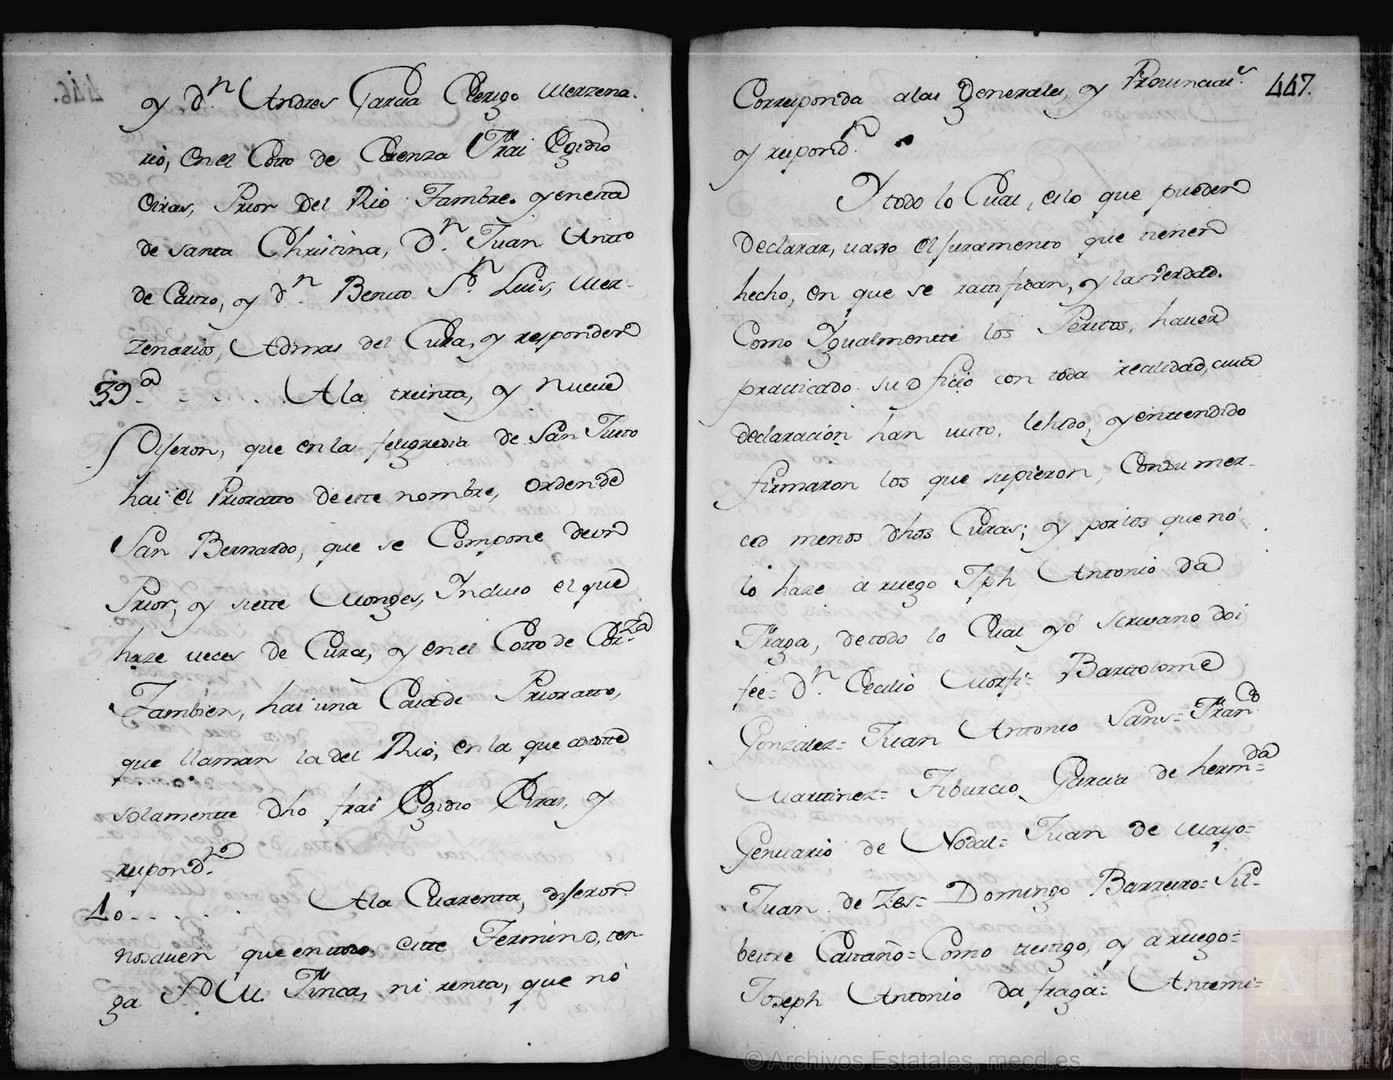 y d.n Andres Garcia Clerigo Merzena-
rio, en el Coto de Carenza Frai Egidio
Eiras, Prior del Rio Tambre. y en esta
de santa Christina, D.n Juan Antto
de Castro, y d.n Benito S.n Luis, Mer-
zenarios, Ademas del Cura, y responden
39.a - - - - - - A la treinta, y nueve
Disseron, que en la feligresia de San Justo
hai el Prioratto de este nombre, orden de
San Bernardo, que se Compone de un
Prior, y siette Monges, Incluso el que
haze veces de Cura, y en el Coto de
Tambien, hai una Casa de Prioratto,
que llaman la del Rio, en la que assiste
solamente dho frai Egidio Eiras, y
respond.n
40 - - - - - - A la Cuarenta, disseron
no saven que en todo este Termino, ten-
ga S. M. Finca, ni renta, que no
Corresponda a las Generales, y Provincial.s 447.
y respond.n
Y todo lo Cual, es lo que pueden
Declarar, vaxo el Juramento que tienen
hecho, en que se ratifican, y la verdad.
Como Ygualmente los Peritos, haver
practicado su oficio con toda realidad, cuia
declaracion han visto, lehido, y entendido
firmaron los que supieron, Con su mer-
ced menos dhos Curas; y por los que no
lo haze a ruego Jph Antonio da
Fraga, de todo lo Cual yo Scrivano doi
fee= D.n Cecilio Morfi= Bartolome
Gonzalez= Juan Antonio Sans= Fran.co
Martinez= Tiburcio Garcia de herm.da=
Genuario de Nodal= Juan de Mayo=
Juan de Zes= Domingo Barreiro= Sil-
bestre Castaño= Como testigo, y a ruego=
Joseph Antonio da fraga= Antemi=
© Archivos Estatales, mecd.es
A E
ARCHIVOS
ESTATALES